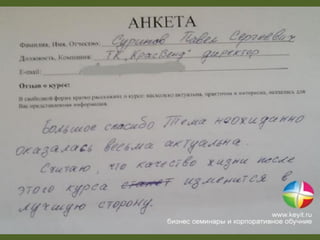 АНКЕТА
Фамилия, Имя, Отчество: Суринов Павел Сергеевич
Должность, Компания: ТК "КрасВенд" директор
E-mail:
Отзыв о курсе:
В свободной форме кратко расскажите о курсе: насколько актуальна, практична и интересна, оказалась для
Вас представленная информация.
Большое спасибо Тема неожиданно
оказалась весьма актуальна.
Считаю, что качество жизни после
этого курса станет изменится в
лучшую сторону.
www.keyit.ru
бизнес семинары и корпоративное обучение